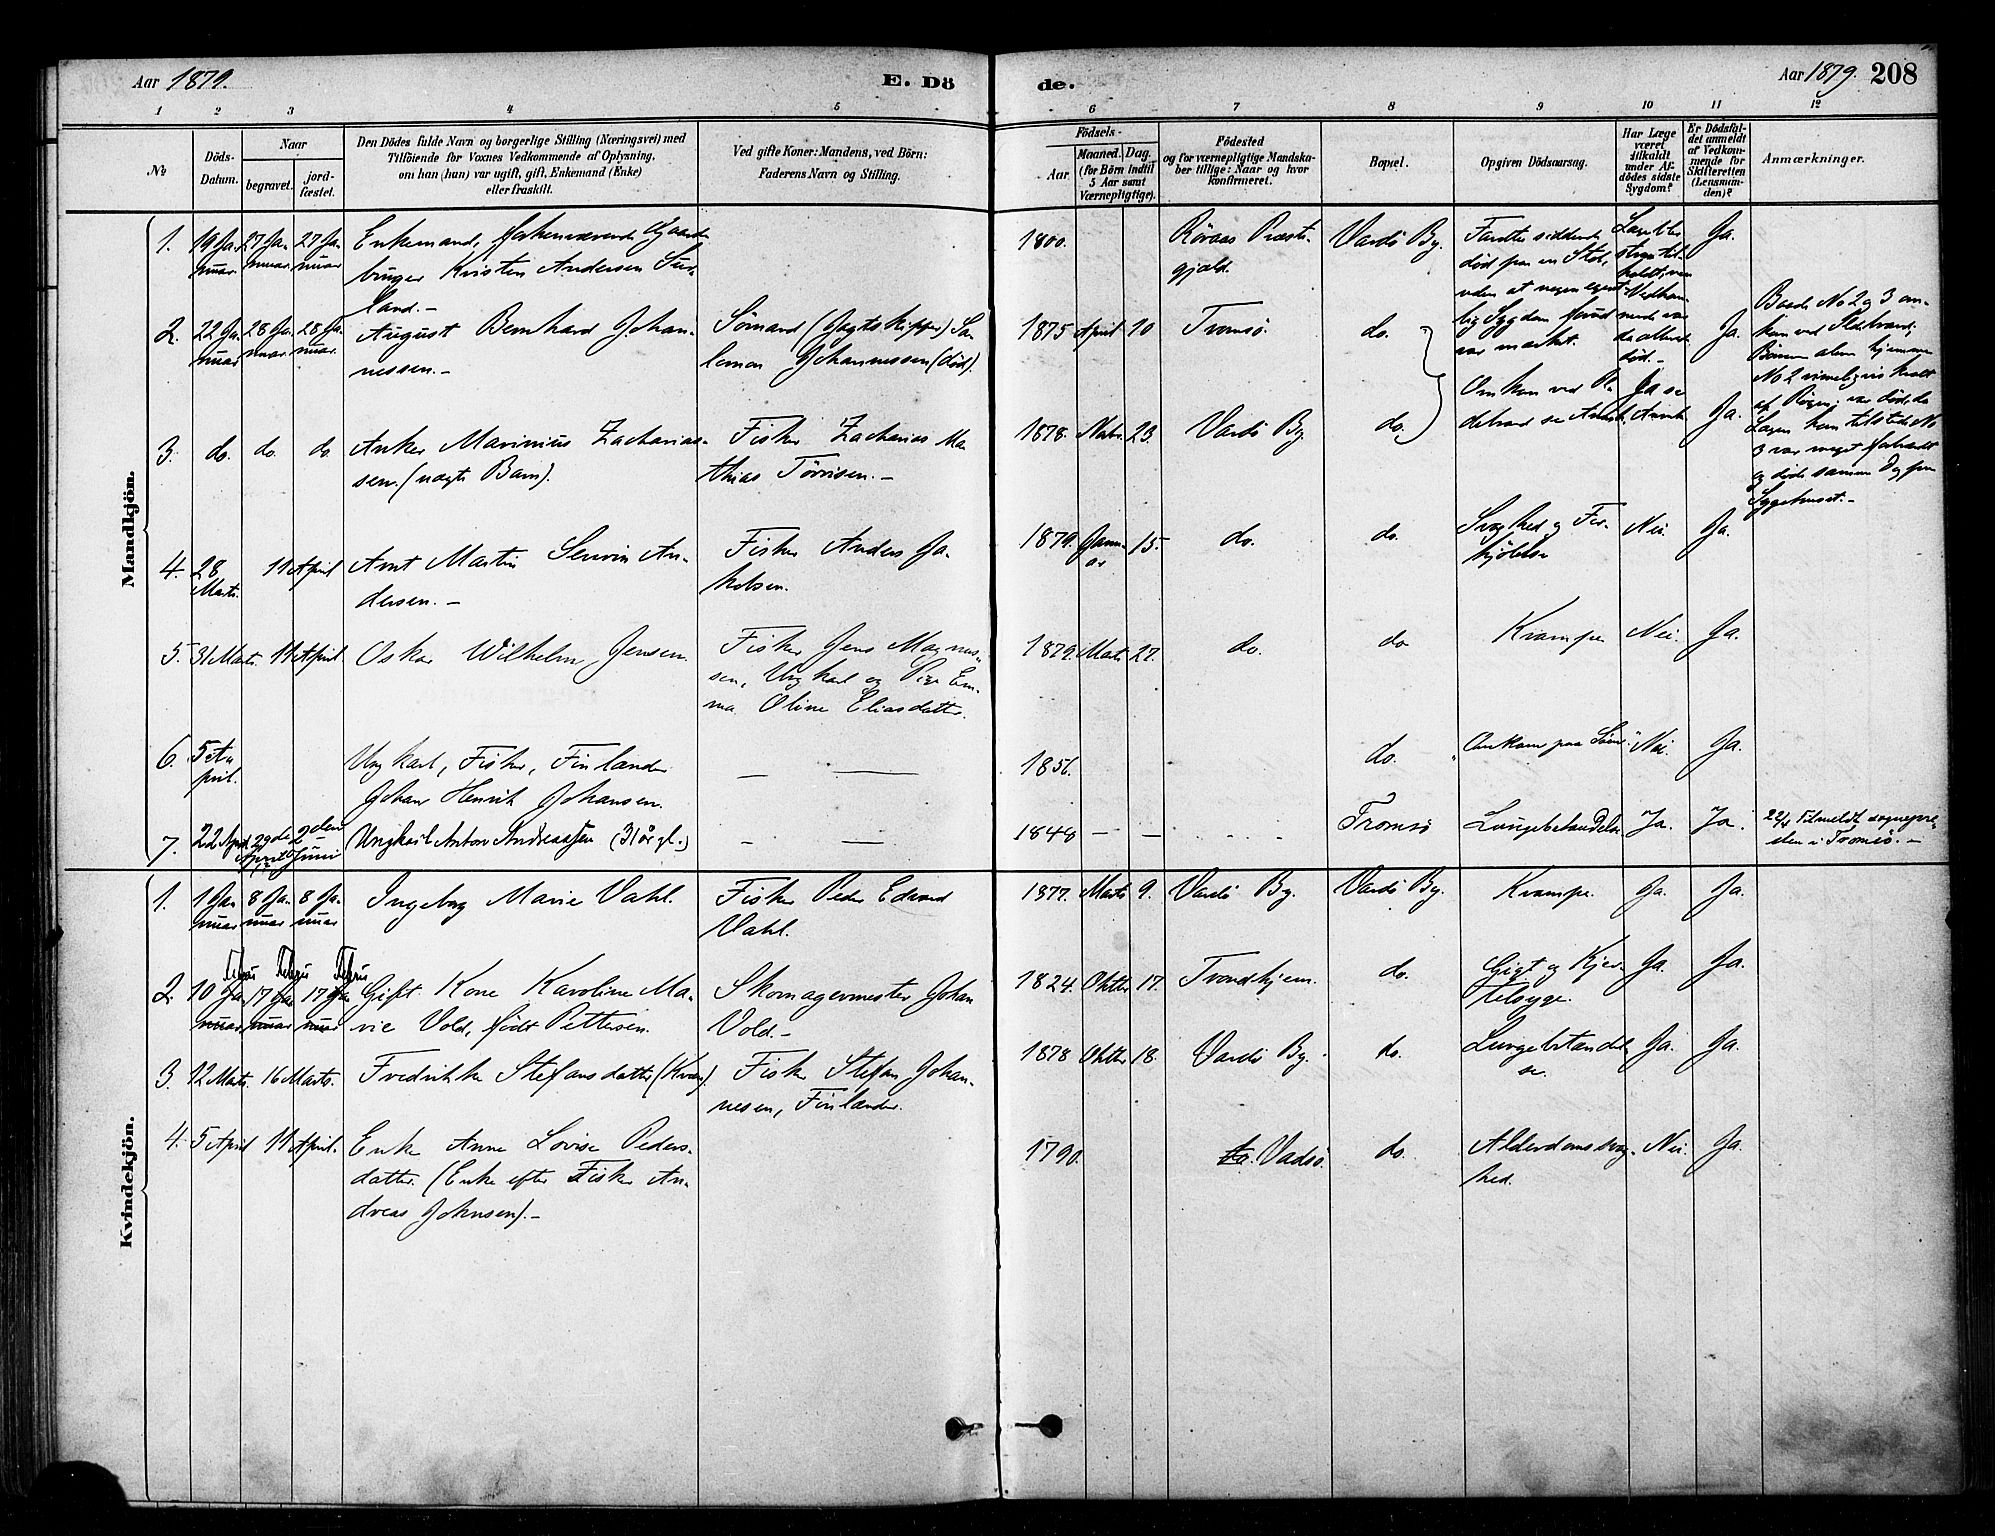 Aar 1879.
E. Dö
de.
Aar 1879. 208
1 2 3 4 5 6 7 8 9 10 11 12
No
Döds-
Datum.
Naar
begravet.
jord-
fæstet.
Den Dödes fulde Navn og borgerlige Stilling (Næringsvei) med
Tilföiende for Voxnes Vedkommende af Oplysning,
om han (hun) var ugift, gift, Enkemand (Enke)
eller fraskilt.
Ved gifte Koner: Mandens, ved Börn:
Faderens Navn og Stilling.
Födsels-
Aar
Maaned. Dag.
(for Börn indtil
5 Aar samt
Værnepligtige).
Födested
og for værnepligtige Mandska-
ber tillige: Naar og hvor
konfirmeret.
Bopæl.
Opgiven Dödsaarsag.
Har Læge
været
tilkaldt
under Af-
dödes sidste
Sygdom?
Er Dödsfal-
det anmeldt
af Vedkom-
mende for
Skifteretten
(Lensman-
den)?
Anmærkninger.
Mandkjön.
1. 19 Ja-
nuar.
27 Ja-
nuar
27 Ja-
nuar
Enkemand, forhenværende Gaard-
bruger Kristen Andersen
land.-
1800.
Röraas Præste-
gjæld.
Vardö By.
Fandtes siddende
död paa en Stol,
uden at nogen egent-
lig Sygdom forud
var mærket.
död.-
Ja.
2. 22 Ja-
nuar
28 Ja-
nuar
28 Ja-
nuar.
August Bernhard Johan-
nessen.-
Sömand (Jagtskipper) Sa-
lomon Johannessen (död).
1875 April 10 Tromsö. do.
Omkom ved Il-
debrand se Anmk.
Ja se
Anmk.
Ja.
Baade No 2 og 3 om-
kom ved Ildebrand;
Börnene alene hjemme
No 2 rimeligvis kvalt
af Rögen; var död, da
Lægen kom tilstede. No
3 var meget forbrændt
og döde samme Dag paa
Sygehuset.-
3. do. do. do.
Anker Marinius Zacharias-
sen. (uægte Barn).
Fisker Zacharias Ma-
thias Törrisen.-
1878. Novbr. 23. Vardö By. do. Ja.
4. 28
Marts.
11 April
Arnt Martin Senvin An-
dersen.-
Fisker Anders Ja-
kobsen.
1879. Janu-
ar
15. do. do.
Svaghed og For-
kjölelse
Nei. Ja.
5. 31 Marts. 11 April. Oskar Wilhelm Jensen.
Fisker Jens Magnus-
sen, Ungkarl og Pige Em-
ma Oline Eliasdatter.
1879. Marts 27. do. do Krampe Nei. Ja.
6. 5 A-
pril.
Ungkarl, Fisker, Finlænder
Johan Henrik Johansen.
1856. do. Omkom paa Söen Nei. Ja.
7. 22 April 29de
April
2den
Juni
Ungkarl Anton Andreassen (31 år gl.)
1848 Tromsö Lungebetændelse Ja. Ja.
22/4 Tilmeldt sognepre-
sten i Tromsö.-
Kvindekjön.
1. 1 Ja-
nuar
8 Ja-
nuar
8 Ja-
nuar
Ingeborg Marie Vahl.
Fisker Peder Edvard
Vahl.
1877. Marts 9. Vardö By. Vardö By. Krampe. Ja. Ja.
2. 10 Ja-
nuar
Februs
17 Ja-
nuar
Februs
17 Ja-
nuar
Februs
Gift Kone Karoline Ma-
rie Vold, födt Pettersen.
Skomagermester Johan
Vold.-
1824. Oktbr 17. Trondhjem. do.
Gigt og Kjer-
telsyge.
Ja. Ja.
3. 12 Marts. 16 Marts. Fredrikke Stefansdatter (Kvæn)
Fisker Stefan Johan-
nesen, Finlænder.
1878 Oktbr 18. Vardö By. do.
Lungebetændel-
se.
Ja. Ja.
4. 5 April 11 April.
Enke Anne Lovise Peders-
datter. (Enke efter Fisker An-
dreas Johnsen).-
1790. do. Vadsö. do.
Alderdomssvag-
hed.
Nei. Ja.